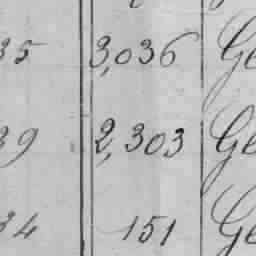 35 3,036 Ge
39 2,303 Ge
34 151 Ge